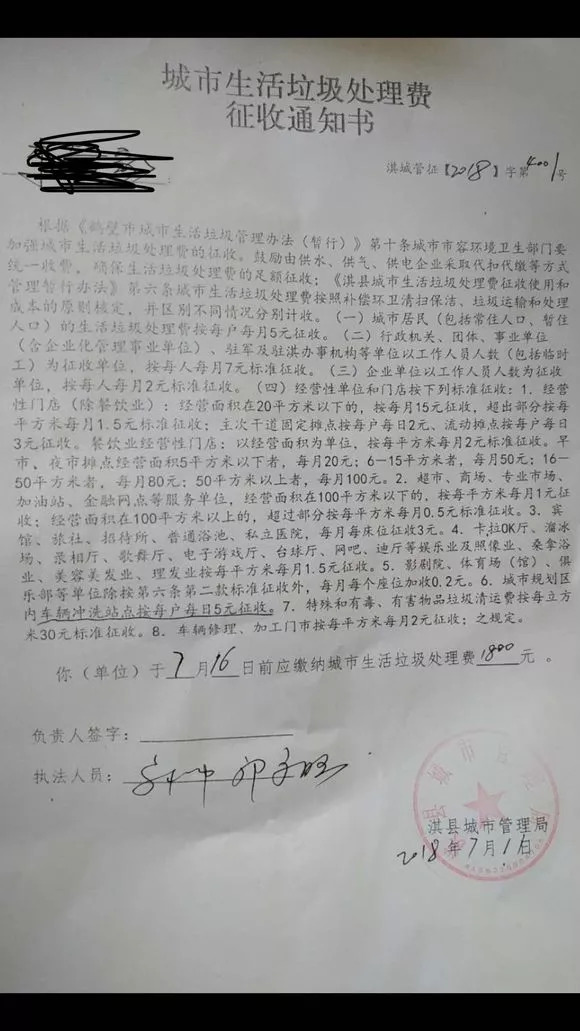 城市生活垃圾处理费
征收通知书
淇城管征【2018】字第4001号
根据《鹤壁市城市生活垃圾管理办法（暂行）》第十条城市市容环境卫生部门要
加强城市生活垃圾处理费的征收。鼓励由供水、供气、供电企业采取代扣代缴等方式
统一收费，确保生活垃圾处理费的足额征收；《淇县城市生活垃圾处理费征收使用和
管理暂行办法》第六条城市生活垃圾处理费按照补偿环卫清扫保洁、垃圾运输和处理
成本的原则核定，并区别不同情况分别计收。（一）城市居民（包括常住人口、暂住
人口）的生活垃圾处理费按每户每月5元征收。（二）行政机关、团体、事业单位
（含企业化管理事业单位）、驻军及驻淇办事机构等单位以工作人员人数（包括临时
工）为征收单位，按每人每月7元标准征收。（三）企业单位以工作人员人数为征收
单位，按每人每月2元标准征收。（四）经营性单位和门店按下列标准征收：1．经营
性门店（除餐饮业）：经营面积在20平方米以下的，按每月15元征收，超出部分按每
平方米每月1.5元标准征收；主次干道固定摊点按每户每日2元、流动摊点按每户每日
3元征收。餐饮业经营性门店：以经营面积为单位，按每平方米每月2元标准征收。早
市、夜市摊点经营面积5平方米以下者，每月20元；6—15平方米者，每月50元；16—
50平方米者，每月80元；50平方米以上者，每月100元。2．超市、商场、专业市场、
加油站、金融网点等服务单位，经营面积在100平方米以下的，按每平方米每月1元征
收；经营面积在100平方米以上的，超过部分按每平方米每月0.5元标准征收。3．宾
馆、旅社、招待所、普通浴池、私立医院，每月每床位征收3元。4．卡拉OK厅、溜冰
场、录相厅、歌舞厅、电子游戏厅、台球厅、网吧、迪厅等娱乐业及照像业、桑拿浴
业、美容美发业、理发业按每平方米每月1.5元征收。5．影剧院、体育场（馆）、俱
乐部等单位除按第六条第二款标准征收外，每月每个座位加收0.2元。6．城市规划区
内车辆冲洗站点按每户每日5元征收。7．特殊和有毒、有害物品垃圾清运费按每立方
米30元标准征收。8．车辆修理、加工门市按每平方米每月2元征收；之规定。
你（单位）于7月16日前应缴纳城市生活垃圾处理费1800元 。
负责人签字：
执法人员：
淇县城市管理局
2018年7月1日